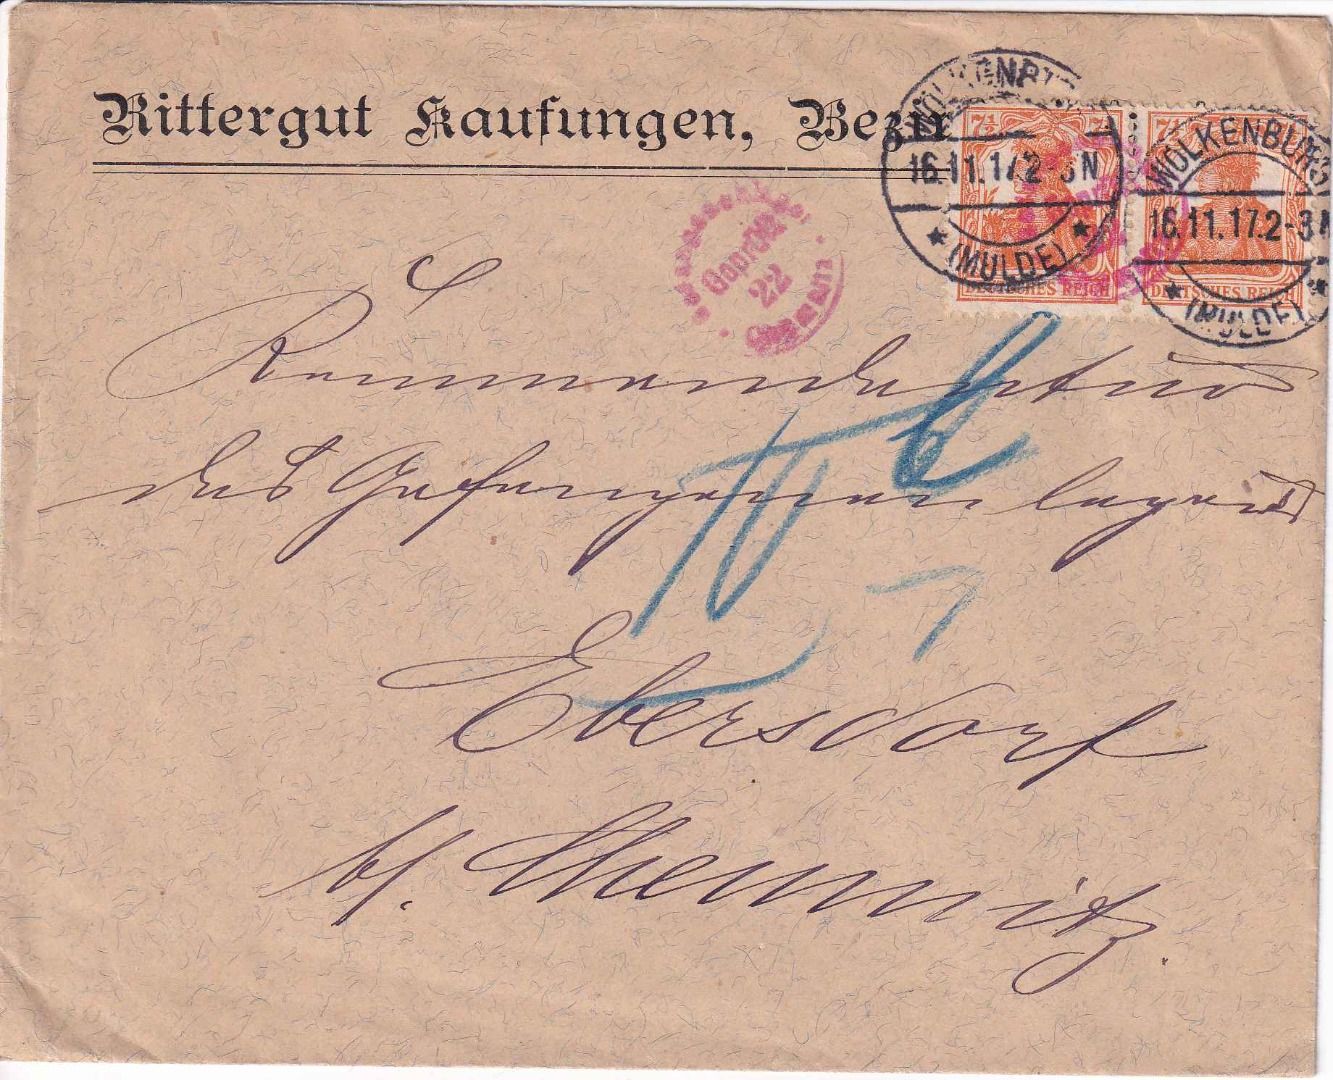 Rittergut Kaufungen, Bezir
WOLKENBU
16.11.17.2-3N
(MULDE)
WOLKENBURG
16.11.17.2-3N
(MULDE)
7½ 7½
DEUTSCHES REICH
7½
DEUTSCHES REICH
Geprüft
22
Kommandantur
des Gefangenenlagers
Ebersdorf
b/. Chemnitz.